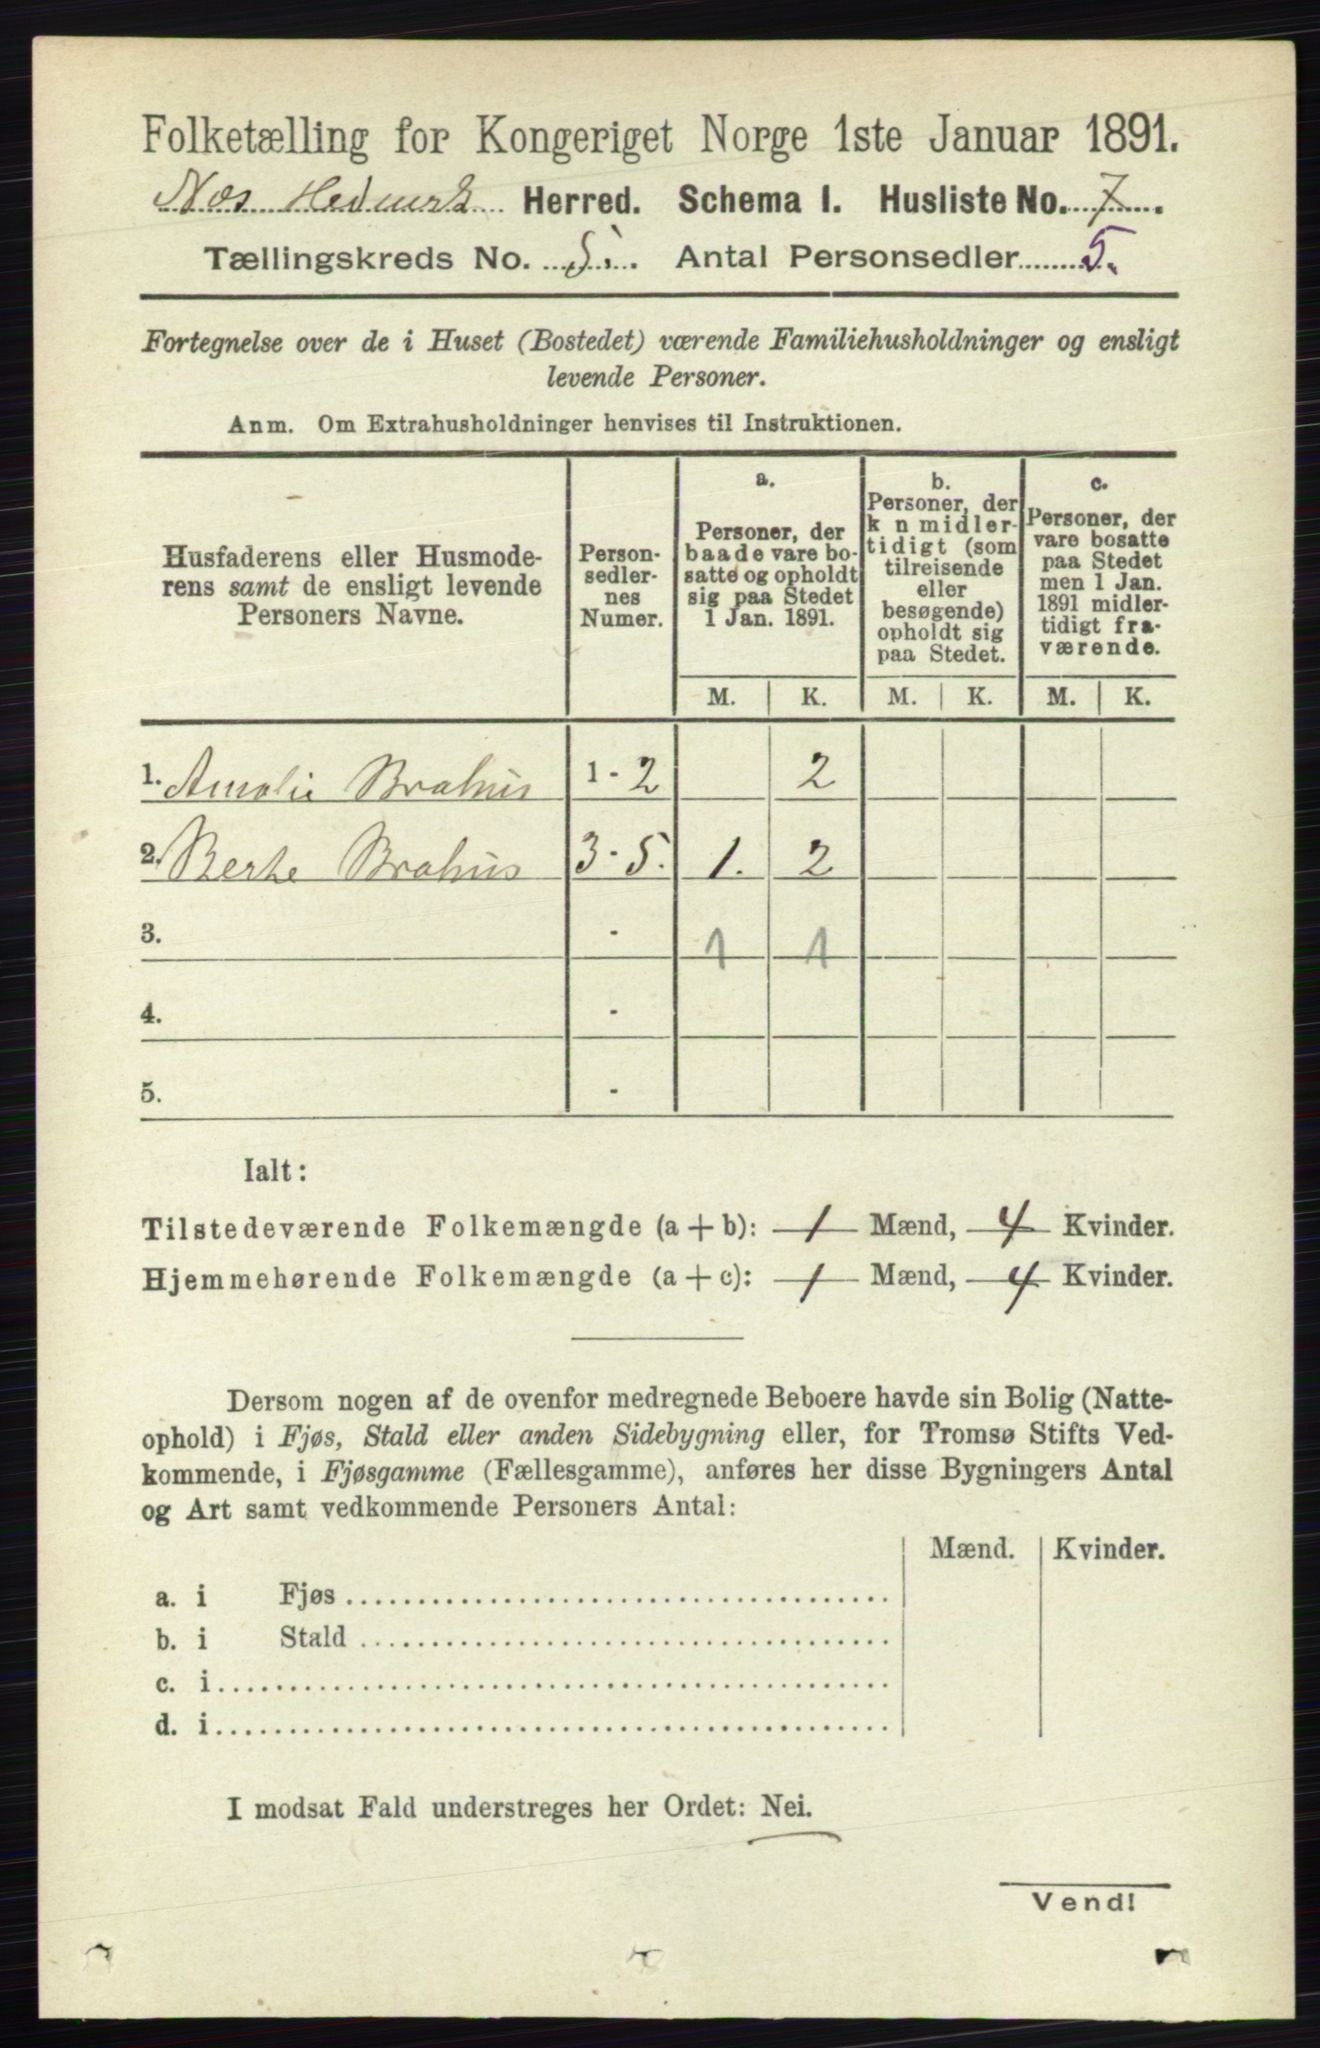 Folketælling for Kongeriget Norge 1ste Januar 1891.
Næs Hedmark Herred. Schema I. Husliste No. 7.
Tællingskreds No. 5. Antal Personsedler 5.
Fortegnelse over de i Huset (Bostedet) værende Familiehusholdninger og ensligt
levende Personer.
Anm. Om Extrahusholdninger henvises til Instruktionen.
Husfaderens eller Husmode-
rens samt de ensligt levende
Personers Navne.
Person-
sedler-
nes
Numer.
a.
Personer, der
baade vare bo-
satte og opholdt
sig paa Stedet
1 Jan. 1891.
b.
Personer, der
k n midler-
tidigt (som
tilreisende
eller
besøgende)
opholdt sig
paa Stedet.
c.
Personer, der
vare bosatte
paa Stedet
men 1 Jan.
1891 midler-
tidigt fra-
værende.
M. K. M. K. M. K.
1. Amalie Brahus 1 - 2 2
2. Berthe Brahus 3 - 5. 1. 2
3. - 1 1
4. -
5. -
Ialt:
Tilstedeværende Folkemængde (a + b): 1 Mænd, 4 Kvinder.
Hjemmehørende Folkemængde (a + c): 1 Mænd, 4 Kvinder.
Dersom nogen af de ovenfor medregnede Beboere havde sin Bolig (Natte-
ophold) i Fjøs, Stald eller anden Sidebygning eller, for Tromsø Stifts Ved-
kommende, i Fjøsgamme (Fællesgamme), anføres her disse Bygningers Antal
og Art samt vedkommende Personers Antal:
Mænd. Kvinder.
a. i Fjøs
b. i Stald
c. i
d. i
I modsat Fald understreges her Ordet: Nei.
Vend!